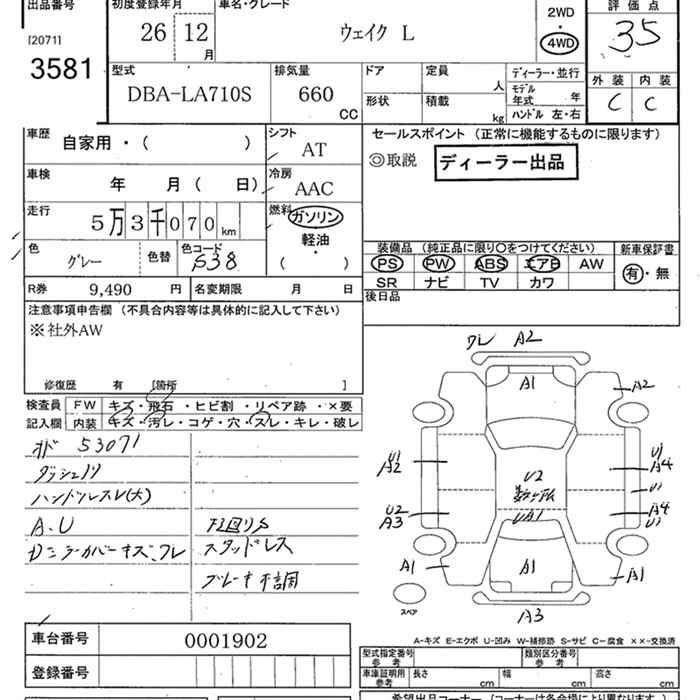 出品番号 初度登録年月 車名・グレード 評価点
[2071] 26 12 月 ウェイク L 2WD 4WD 35
3581
型式 排気量 ドア 定員 人 ディーラー・並行 外装 内装
DBA-LA710S 660 CC 形状 積載 kg モデル年式 年 C C
ハンドル 左・右
車歴 自家用・( ) シフト AT セールスポイント (正常に機能するものに限ります)
◎取説 ディーラー出品
車検 年 月( 日) 冷房 AAC
走行 5万3千070km 燃料 ガソリン 軽油 ・ ( )
色 グレー 色替 色コード S38
装備品 (純正品に限り○をつけてください) 新車保証書
PS PW ABS エアB AW 有・無
SR ナビ TV カワ
R券 9,490 円 名変期限 月 日 後日品
注意事項申告欄 (不具合内容等は具体的に記入して下さい)
※社外AW
修復歴 有 [箇所 ]
検査員記入欄 FW キズ・飛石・ヒビ割・リペア跡・×要
内装 キズ・汚レ・コゲ・穴・スレ・キレ・破レ
オド 53071
ダッシュノリ
ハンドルスレ(大)
A.U 下廻りS
スタッドレス
ブレーキ不調
ワレ A2
A1 A2
U1 A2 U1 A4
U2 U1
U2 A3 A4 U1
UA1
A1 A1 A1
スペア A3
A-キズ E-エクボ U-凹み W-補修跡 S-サビ C-腐食 ××-交換済
車台番号 0001902
登録番号
型式指定番号 参考 類別区分番号 参考
車庫証明用 参考 長さ cm 幅 cm 高さ cm
希望出品コーナー